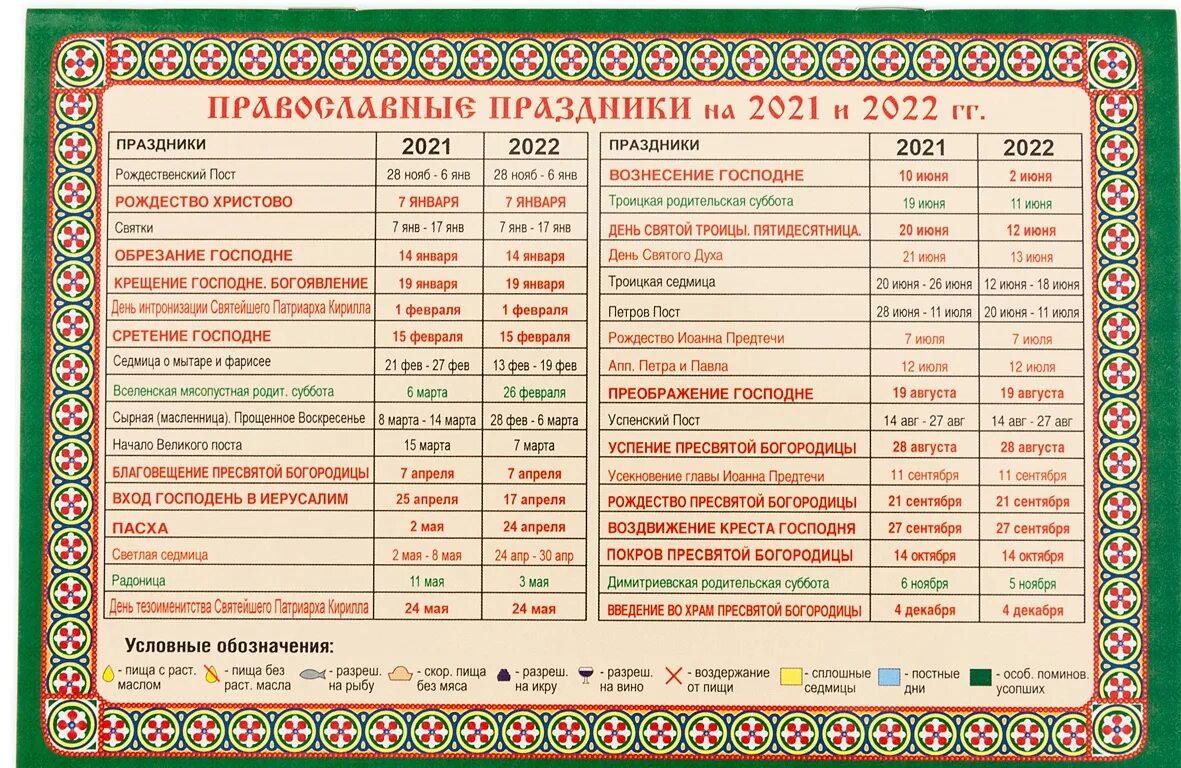 ПРАВОСЛАВНЫЕ ПРАЗДНИКИ на 2021 и 2022 гг.
ПРАЗДНИКИ 2021 2022
Рождественский Пост 28 нояб - 6 янв 28 нояб - 6 янв
РОЖДЕСТВО ХРИСТОВО 7 ЯНВАРЯ 7 ЯНВАРЯ
Святки 7 янв - 17 янв 7 янв - 17 янв
ОБРЕЗАНИЕ ГОСПОДНЕ 14 января 14 января
КРЕЩЕНИЕ ГОСПОДНЕ. БОГОЯВЛЕНИЕ 19 января 19 января
День интронизации Святейшего Патриарха Кирилла 1 февраля 1 февраля
СРЕТЕНИЕ ГОСПОДНЕ 15 февраля 15 февраля
Седмица о мытаре и фарисее 21 фев - 27 фев 13 фев - 19 фев
Вселенская мясопустная родит. суббота 6 марта 26 февраля
Сырная (масленница). Прощенное Воскресенье 8 марта - 14 марта 28 фев - 6 марта
Начало Великого поста 15 марта 7 марта
БЛАГОВЕЩЕНИЕ ПРЕСВЯТОЙ БОГОРОДИЦЫ 7 апреля 7 апреля
ВХОД ГОСПОДЕНЬ В ИЕРУСАЛИМ 25 апреля 17 апреля
ПАСХА 2 мая 24 апреля
Светлая седмица 2 мая - 8 мая 24 апр - 30 апр
Радоница 11 мая 3 мая
День тезоименитства Святейшего Патриарха Кирилла 24 мая 24 мая
ПРАЗДНИКИ 2021 2022
ВОЗНЕСЕНИЕ ГОСПОДНЕ 10 июня 2 июня
Троицкая родительская суббота 19 июня 11 июня
ДЕНЬ СВЯТОЙ ТРОИЦЫ. ПЯТИДЕСЯТНИЦА. 20 июня 12 июня
День Святого Духа 21 июня 13 июня
Троицкая седмица 20 июня - 26 июня 12 июня - 18 июня
Петров Пост 28 июня - 11 июля 20 июня - 11 июля
Рождество Иоанна Предтечи 7 июля 7 июля
Апп. Петра и Павла 12 июля 12 июля
ПРЕОБРАЖЕНИЕ ГОСПОДНЕ 19 августа 19 августа
Успенский Пост 14 авг - 27 авг 14 авг - 27 авг
УСПЕНИЕ ПРЕСВЯТОЙ БОГОРОДИЦЫ 28 августа 28 августа
Усекновение главы Иоанна Предтечи 11 сентября 11 сентября
РОЖДЕСТВО ПРЕСВЯТОЙ БОГОРОДИЦЫ 21 сентября 21 сентября
ВОЗДВИЖЕНИЕ КРЕСТА ГОСПОДНЯ 27 сентября 27 сентября
ПОКРОВ ПРЕСВЯТОЙ БОГОРОДИЦЫ 14 октября 14 октября
Димитриевская родительская суббота 6 ноября 5 ноября
ВВЕДЕНИЕ ВО ХРАМ ПРЕСВЯТОЙ БОГОРОДИЦЫ 4 декабря 4 декабря
Условные обозначения:
- пища с раст. маслом
- пища без раст. масла
- разреш. на рыбу
- скор. пища без мяса
- разреш. на икру
- разреш. на вино
- воздержание от пищи
- сплошные седмицы
- постные дни
- особ. поминов. усопших